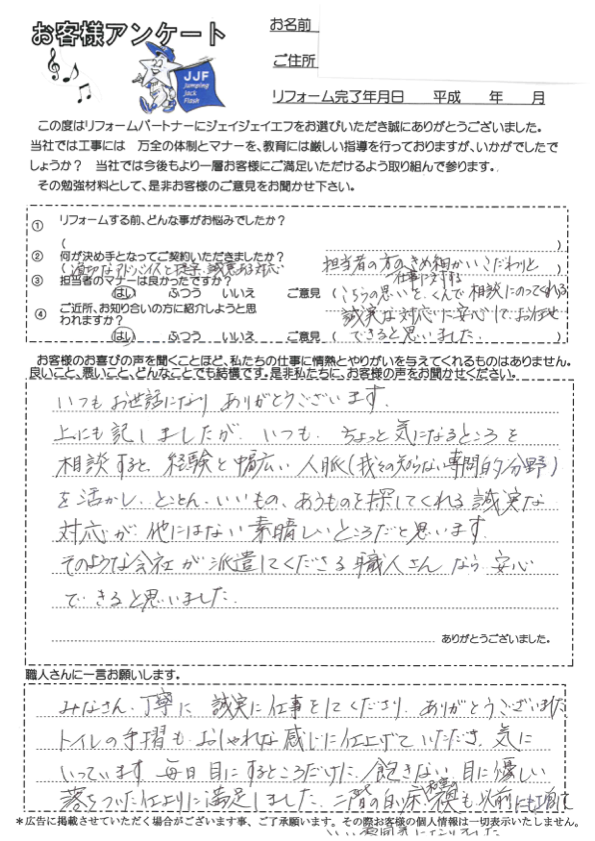 お客様アンケート
JJF
Jumping
Jack
Flash
お名前
ご住所
リフォーム完了年月日 平成 年 月
この度はリフォームパートナーにジェイジェイエフをお選びいただき誠にありがとうございました。
当社では工事には 万全の体制とマナーを、教育には厳しい指導を行っておりますが、いかがでしたで
しょうか? 当社では今後もより一層お客様にご満足いただけるよう取り組んで参ります。
その勉強材料として、是非お客様のご意見をお聞かせ下さい。
① リフォームする前、どんな事がお悩みでしたか?
( )
② 何が決め手となってご契約いただきましたか?
(適切なアドバイスと提案、誠意ある対応
担当者の方のきめ細かいこだわりと
③ 担当者のマナーは良かったですか?
仕事に対する
はい ふつう いいえ ご意見 (こちらの思いをくんで相談にのってくれる
④ ご近所、お知り合いの方に紹介しようと思
われますか?
誠実な対応に安心してお任せ
はい ふつう いいえ ご意見 ( できると思いました。 )
お客様のお喜びの声を聞くことほど、私たちの仕事に情熱とやりがいを与えてくれるものはありません。
良いこと、悪いこと、どんなことでも結構です。是非私たちに、お客様の声をお聞かせください。
いつもお世話になり ありがとうございます。
上にも記しましたが、いつも、ちょっと気になるところを
相談すると、経験と幅広い人脈(我々の知らない専門的分野)
を活かし、とことん、いいもの、あうものを探してくれる誠実な
対応が、他にはない素晴しいところだと思います。
そのような会社が派遣してくださる職人さんなら、安心
できると思いました。
ありがとうございました。
職人さんに一言お願いします。
みなさん、丁寧に 誠実に仕事をしてくださり、ありがとうございました
トイレの手摺も、おしゃれな感じに仕上げていただき、気に
いっています。毎日目にするところだけに、飽きない、目に優しい
落ちついた仕上りに満足しました。二階の
も以前にも増して
*広告に掲載させていただく場合がございます事、ご了承願います。その際お客様の個人情報は一切表示いたしません。
いい雰囲気になりました